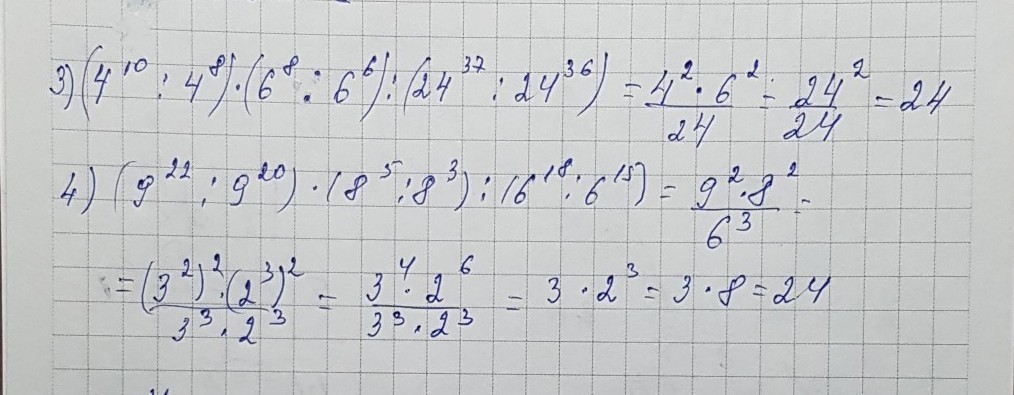 3) (4¹⁰ : 4⁸) · (6⁸ : 6⁶) : (24³⁷ : 24³⁶) = 4² · 6² / 24 = 24² / 24 = 24
4) (9²² : 9²⁰) · (8⁵ : 8³) : (6¹⁸ : 6¹⁵) = 9² · 8² / 6³ =
= (3²)² · (2³)² / 3³ · 2³ = 3⁴ · 2⁶ / 3³ · 2³ = 3 · 2³ = 3 · 8 = 24